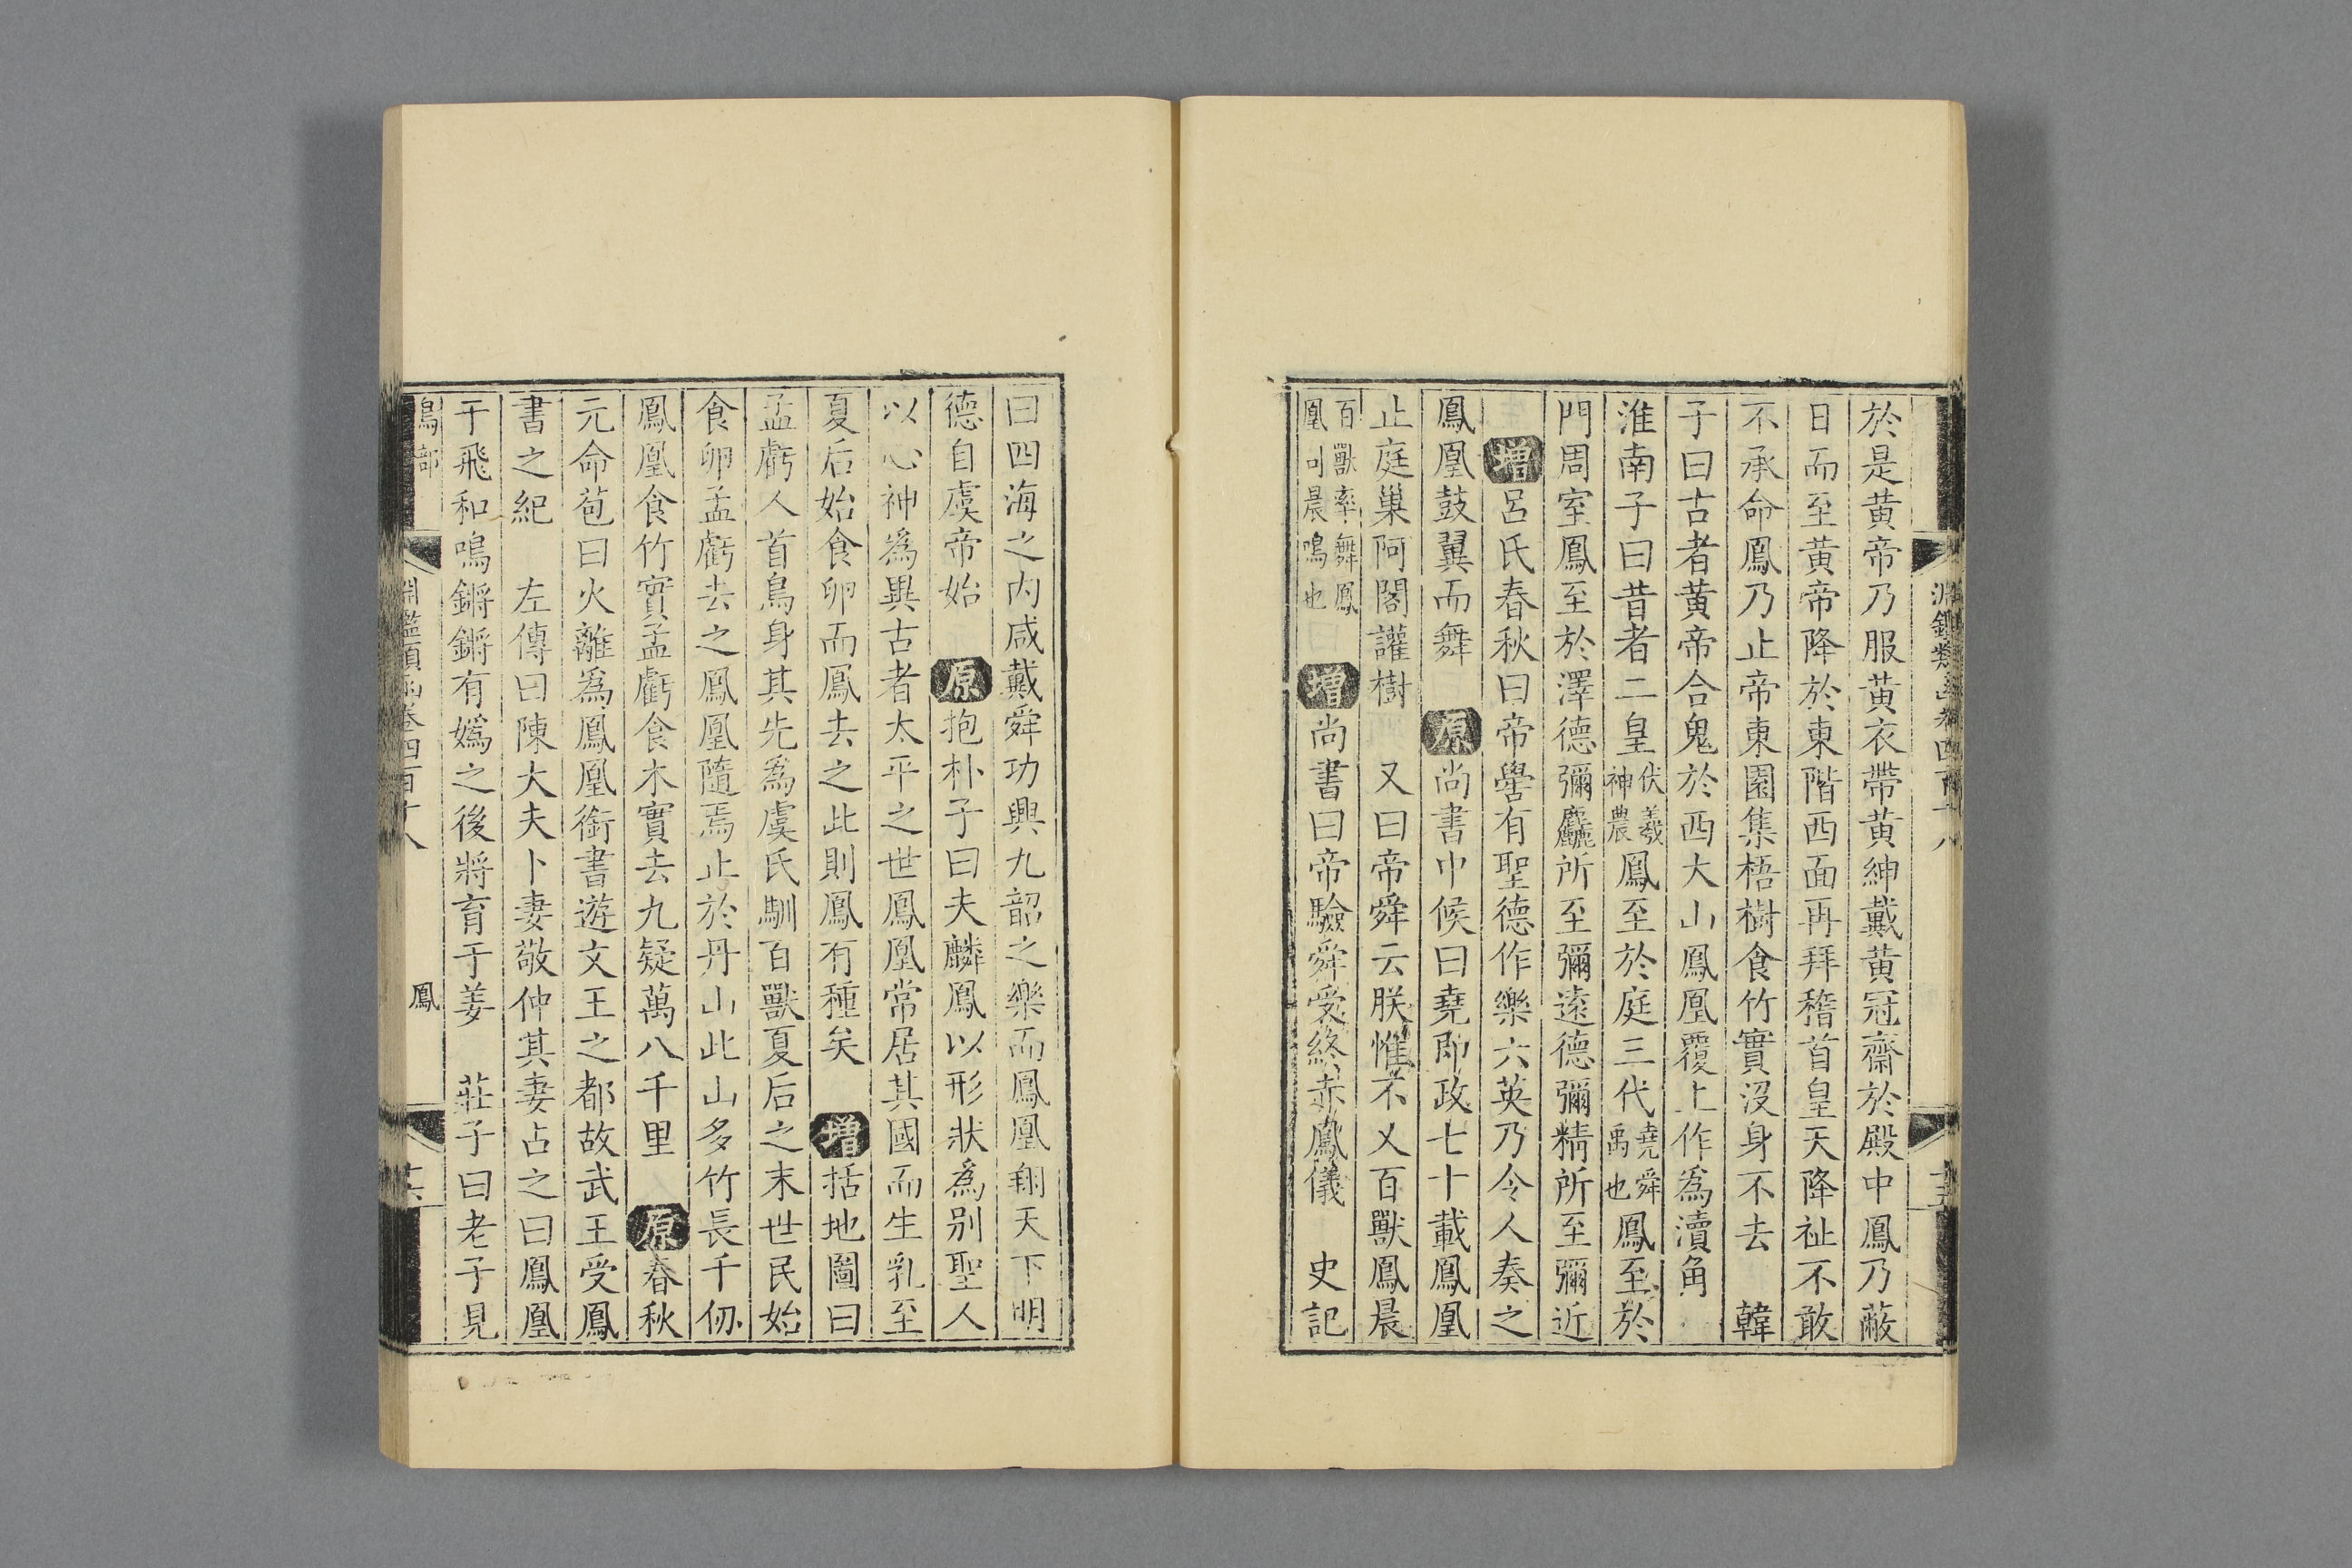 淵鑑類函卷四百十八
於是黄帝乃服黄衣帶黄紳戴黄冠齋於殿中鳳乃蔽
日而至黄帝降於東階西面再拜稽首皇天降祉不敢
不承命鳳乃止帝東園集梧樹食竹實沒身不去 韓
子曰古者黄帝合鬼於西大山鳳凰覆上作為清角
淮南子曰昔者二皇伏羲神農鳳至於庭三代堯舜禹也鳳至於
門周室鳳至於澤德彌麤所至彌遠德彌精所至彌近
增呂氏春秋曰帝嚳有聖德作樂六英乃令人奏之
鳳凰鼓翼而舞 原尚書中候曰堯即政七十載鳳凰
止庭巢阿閣讙樹 又曰帝舜云朕惟不乂百獸鳳晨
百獸率舞鳳凰司晨鳴也 增尚書曰帝驗舜受終赤鳳儀 史記
曰四海之内咸戴舜功興九韶之樂而鳳凰翔天下明
德自虞帝始 原抱朴子曰夫麟鳳以形狀為别聖人
以心神為異古者太平之世鳳凰常居其國而生乳至
夏后始食卵而鳳去之此則鳳有種矣 增括地圖曰
孟虧人首鳥身其先為虞氏馴百獸夏后之末世民始
食卵孟虧去之鳳凰隨焉止於丹山此山多竹長千仞
鳳凰食竹實孟虧食木實去九疑萬八千里 原春秋
元命苞曰火離為鳳凰銜書遊文王之都故武王受鳳
書之紀 左傳曰陳大夫卜妻敬仲其妻占之曰鳳凰
于飛和鳴鏘鏘有媯之後將育于姜 莊子曰老子見
鳥部 淵鑑類函卷四百十八 鳳